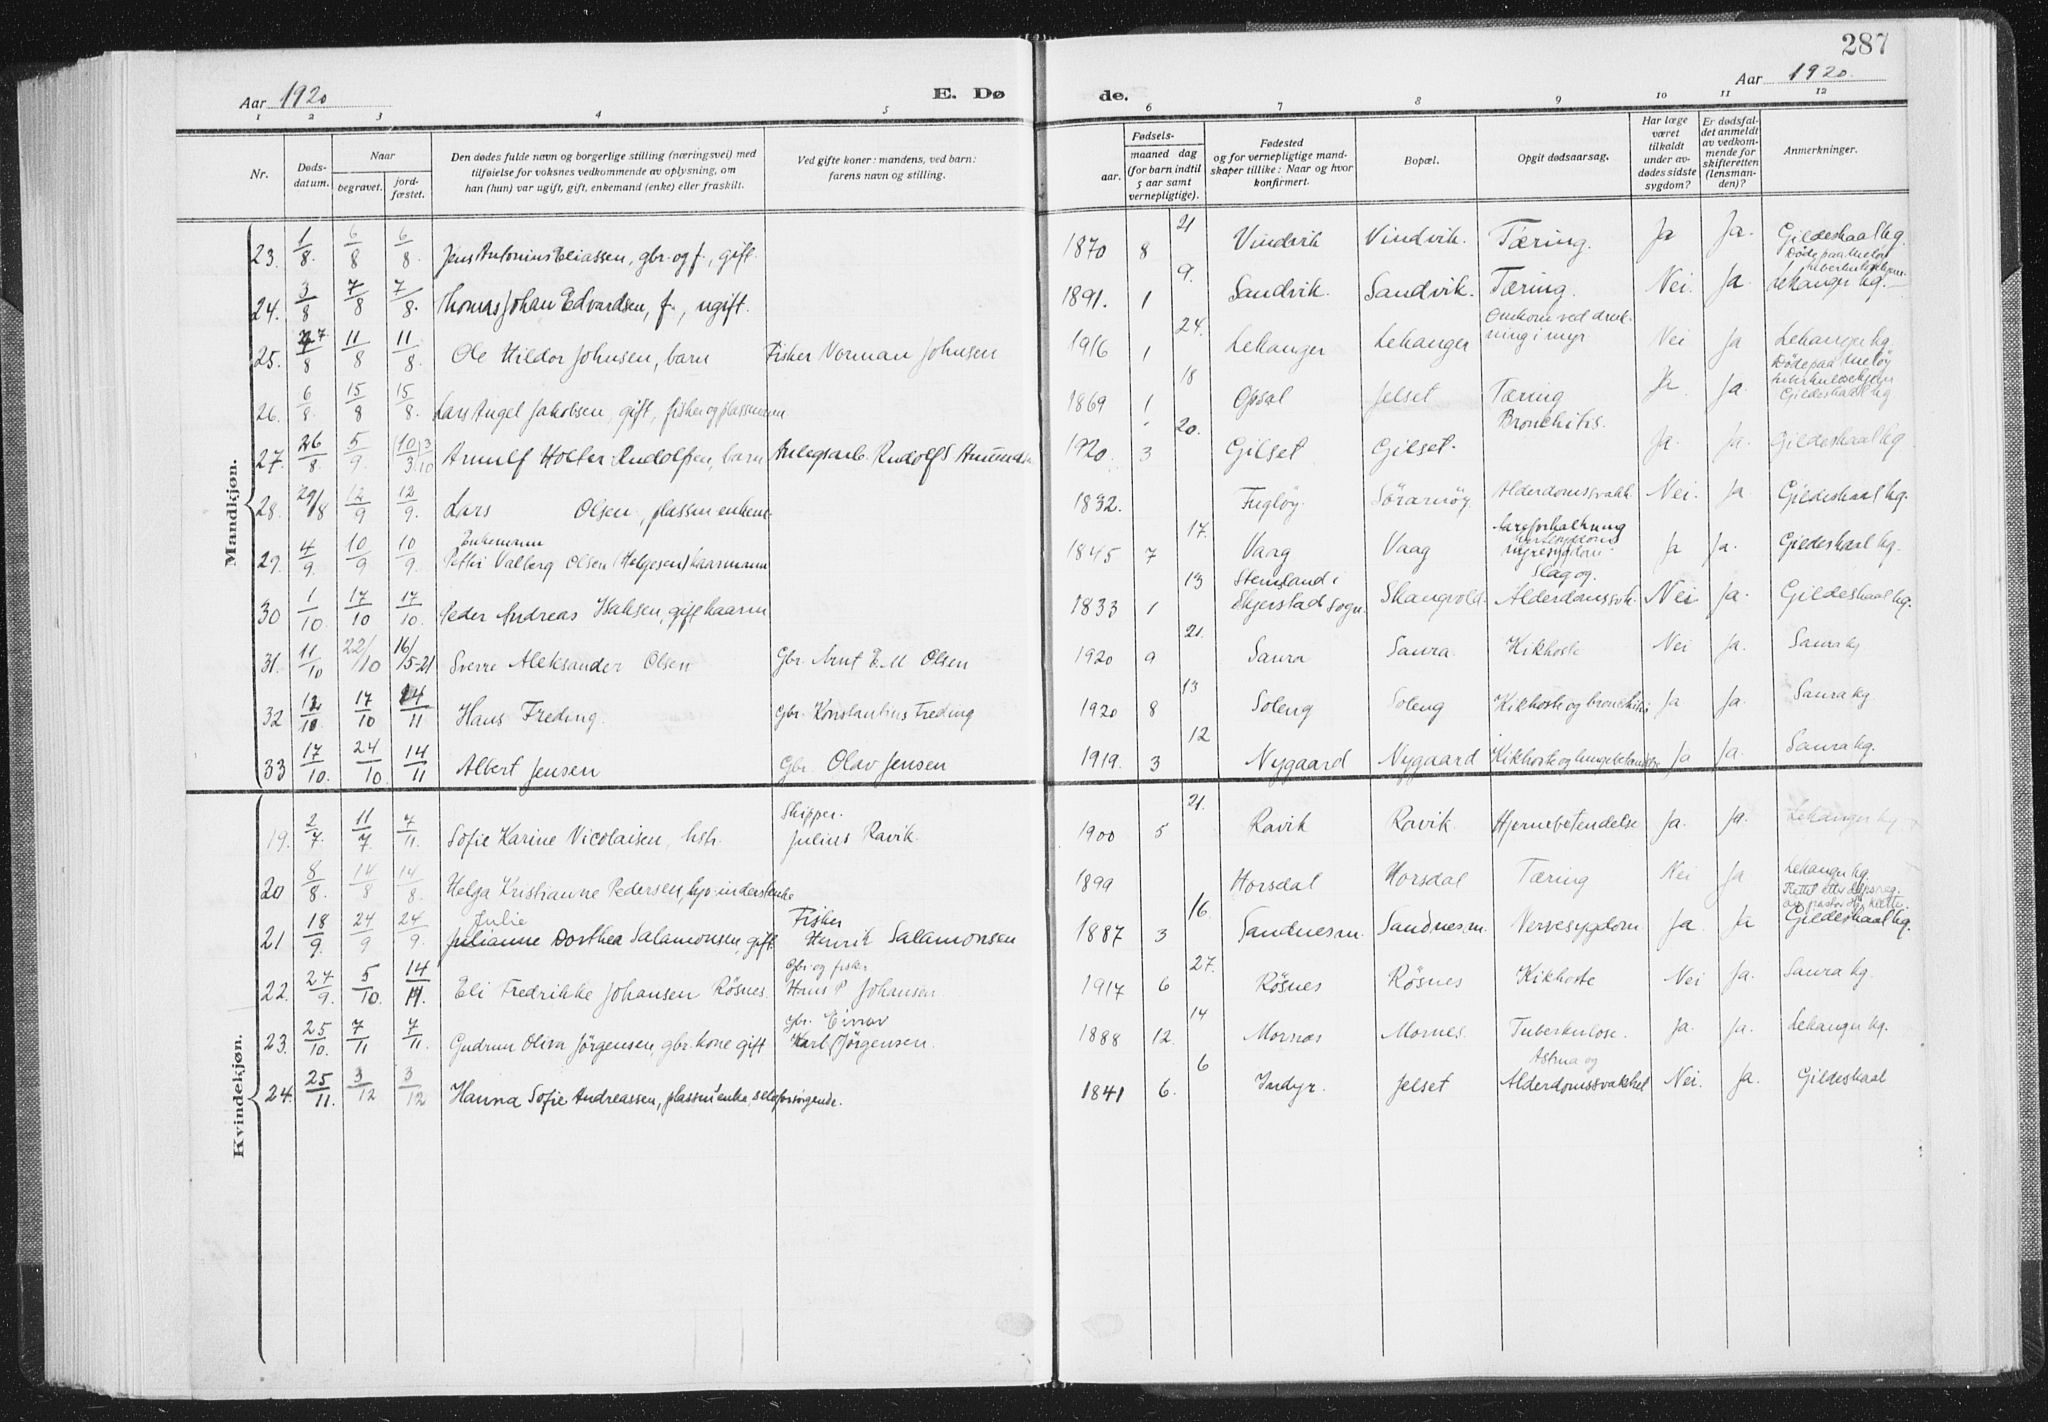 287
Aar 1920
E. Dø
de.
Aar 1920.
1 2 3 4 5 6 7 8 9 10 11 12
Nr.
Døds-
datum.
Naar
begravet.
jord-
fæstet.
Den dødes fulde navn og borgerlige stilling (næringsvei) med
tilføielse for voksnes vedkommende av oplysning, om
han (hun) var ugift, gift, enkemand (enke) eller fraskilt.
Ved gifte koner: mandens, ved barn:
farens navn og stilling.
Fødsels-
aar.
maaned dag
(for barn indtil
5 aar samt
vernepligtige).
Fødested
og for vernepligtige mand-
skaper tillike: Naar og hvor
konfirmert.
Bopæl.
Opgit dødsaarsag.
Har læge
været
tilkaldt
under av-
dødes sidste
sygdom?
Er dødsfal-
det anmeldt
av vedkom-
mende for
skifteretten
(lensman-
den)?
Anmerkninger.
Mandkjøn.
23. 1/8. 6/8 6/8. Jens Antonius Eliassen, gbr. og f., gift. 1870 8 21 Vindvik Vindvik. Tæring. Ja Ja. Gildeskaal kg.
Døde paa Meløy
24. 3/8 7/8 7/8. Thomas Johan Edvardsen, f., ugift. 1891. 1 9. Sandvik. Sandvik. Tæring. Nei. Ja Lekanger kg.
Omkom ved druk-
25. /8 11/8 11/8. Ole Hildor Johnsen, barn Fisker Norman Johnsen 1916 1 24. Lekanger Lekanger ning i myr Nei Ja Lekanger kg.
Døde paa Meløy
tuberkulosehjem
26. 6/8. 15/8 15/8. Lars Angel Jakobsen, gift, fisker og plassmann 1869 1 18 Opsal Jelset Tæring Ja. Gildeskaal kg
27. 26/8 5/9. Arnulf Holter Rudolfsen, barn Anlegsarb. Rudolf 1920. 3 20. Gilset Gilset. Bronchitis. Ja. Ja. Gildeskaal kg.
28. 29/8 12/9 12/9. Lars Olsen, plassm enkem. 1832. Fugløy Sørarnøy Alderdomssvakh. Nei. Ja Gildeskaal kg.
Enkemann
29. 4/9. 10/9 10/9. Petter Valberg Olsen (Helgesen) kaarmann 1845 7 17. Vaag Vaag Aareforkalkning
nyresygdom Ja Ja. Gildeskaal kg.
30 1/10. 17/10 17/10. Peder Andreas Isaksen, gift kaarm 1833 1 13 Stemland i
Skjerstad sogn. Skaugvold. Slag og.
Alderdomssvk. Nei Ja. Gildeskaal kg.
31. 11/10 22/10 16/5-21 Sverre Aleksander Olsen Gbr. Arnt E. M Olsen 1920 9 21. Saura Saura. Kikhoste Nei Ja. Saura kg
32 12/10 17/10 14/11 Hans Freding. Gbr. Konstantius Freding 1920 8 13 Soleng Soleng Kikhoste og bronchitis Ja Ja. Saura kg.
33 17/10. 24/10. 14/11 Albert Jensen Gbr. Olav Jensen 1919. 3 12 Nygaard Nygaard Kikhoste og lungebetændelse Ja Ja. Saura kg.
Kvindekjøn.
Skipper.
19. 2/7. 11/7 7/11. Sofie Karine Nicolaisen, hstr. Julius Ravik. 1900 5 21. Ravik Ravik. Hjernebetendelse Ja. Ja. Lekanger kg
20 8/8. 14/8 14/8. Helga Kristianne Pedersen, 1899 Horsdal Horsdal Tæring Nei Ja Lekanger kg.
Julie Fisker
21 18/9. 24/9 24/9. Julianne Dorthea Salamonsen, gift Henrik Salamonsen 1887 3 16. Sandnes m. Sandnes m. Nervesygdom Ja. Ja Gildeskaal kg.
Gbr og fisker
22. 27/9. 5/10. 14/11. Eli Fredrikke Johansen Røsnes. Hans P Johansen. 1917 6 27. Røsnes Røsnes Kikhoste Nei Ja. Saura kg.
gbr. Einar
23. 25/10. 7/11 7/11. Gudrun Oliva Jørgensen, gbr. kone gift Karl (Jørgensen. 1888 12. 14 Mornes Mornes. Tuberkulose. Ja. Ja. Lekanger kg.
Astma og
24. 25/11. 3/12 3/12 Hanna Sofie Andreassen, plassm enke, selvforsørgende. 1841 6. 6 Indyr. Jelset Alderdomssvakhet Nei. Ja. Gildeskaal